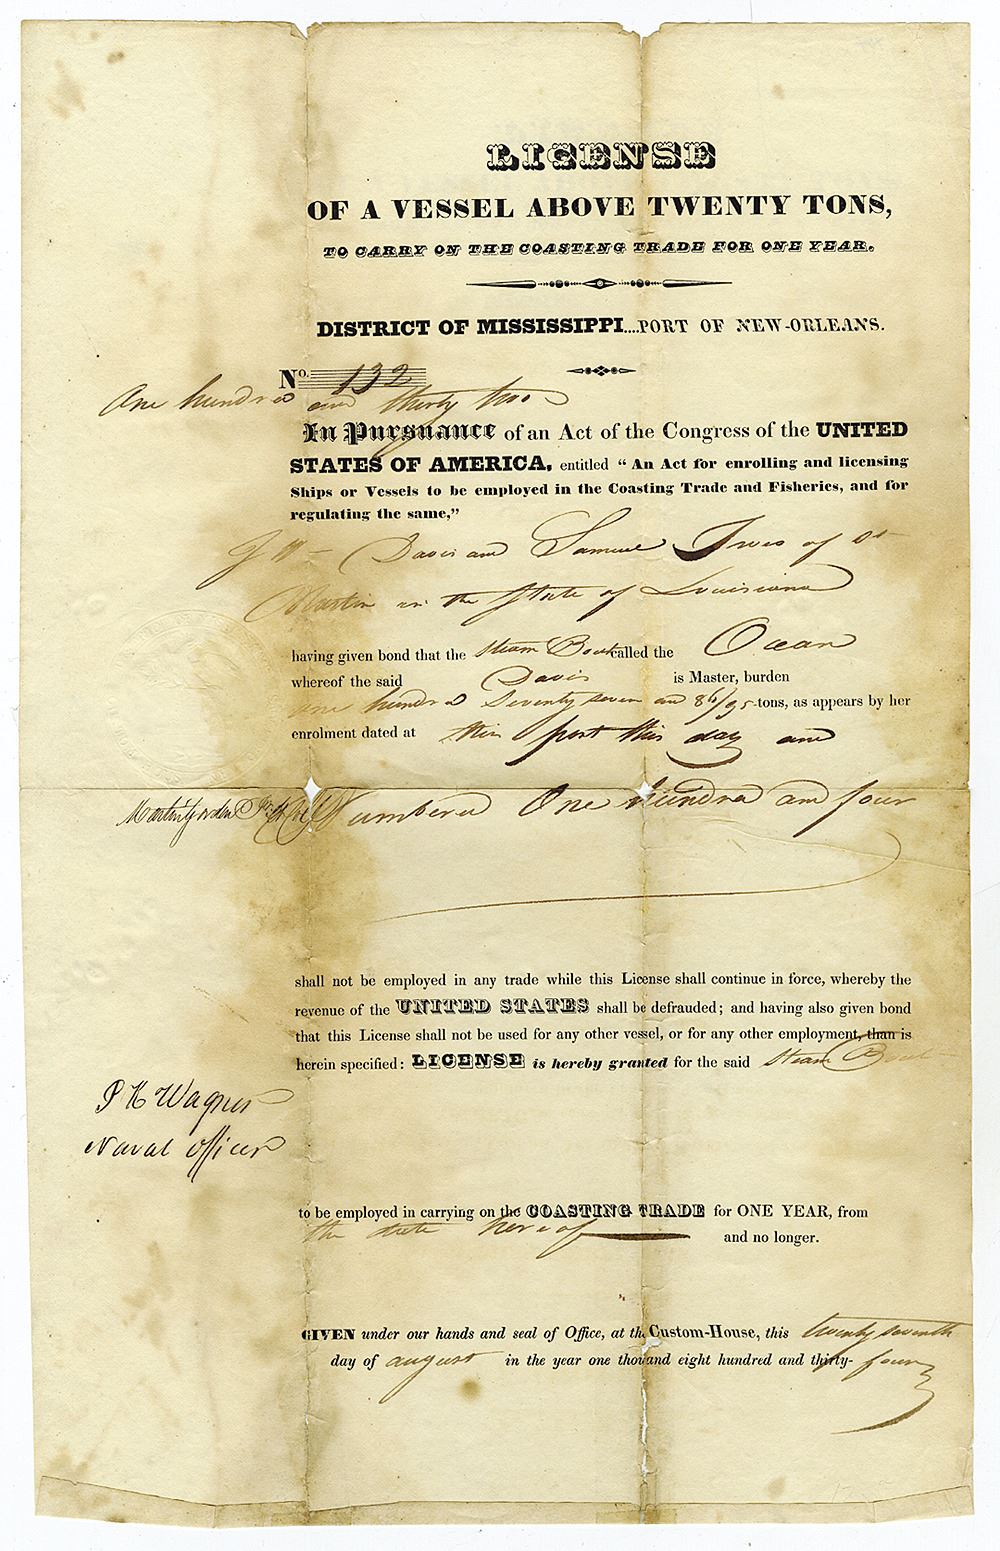 LICENSE
OF A VESSEL ABOVE TWENTY TONS,
TO CARRY ON THE COASTING TRADE FOR ONE YEAR.
DISTRICT OF MISSISSIPPI....PORT OF NEW-ORLEANS.
No. 132
One hundred and thirty two
In Pursuance of an Act of the Congress of the UNITED
STATES OF AMERICA, entitled “An Act for enrolling and licensing
Ships or Vessels to be employed in the Coasting Trade and Fisheries, and for
regulating the same,”
J W Davis and Samuel Ives of St
Martin in the State of Louisiana
having given bond that the Steam Boat called the Ocean
whereof the said Davis is Master, burden
one hundred Seventy seven and 86/95 tons, as appears by her
enrolment dated at this port this day and
Numbered One hundred and four
Martin Gordon
shall not be employed in any trade while this License shall continue in force, whereby the
revenue of the UNITED STATES shall be defrauded; and having also given bond
that this License shall not be used for any other vessel, or for any other employment, than is
herein specified: LICENSE is hereby granted for the said Steam Boat
P K Wagner
Naval Officer
to be employed in carrying on the COASTING TRADE for ONE YEAR, from
the date hereof and no longer.
GIVEN under our hands and seal of Office, at the Custom-House, this twenty seventh
day of august in the year one thousand eight hundred and thirty-four